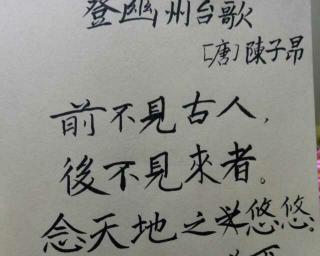 登幽州台歌
[唐]陳子昂
前不見古人,
後不見來者。
念天地之悠悠,